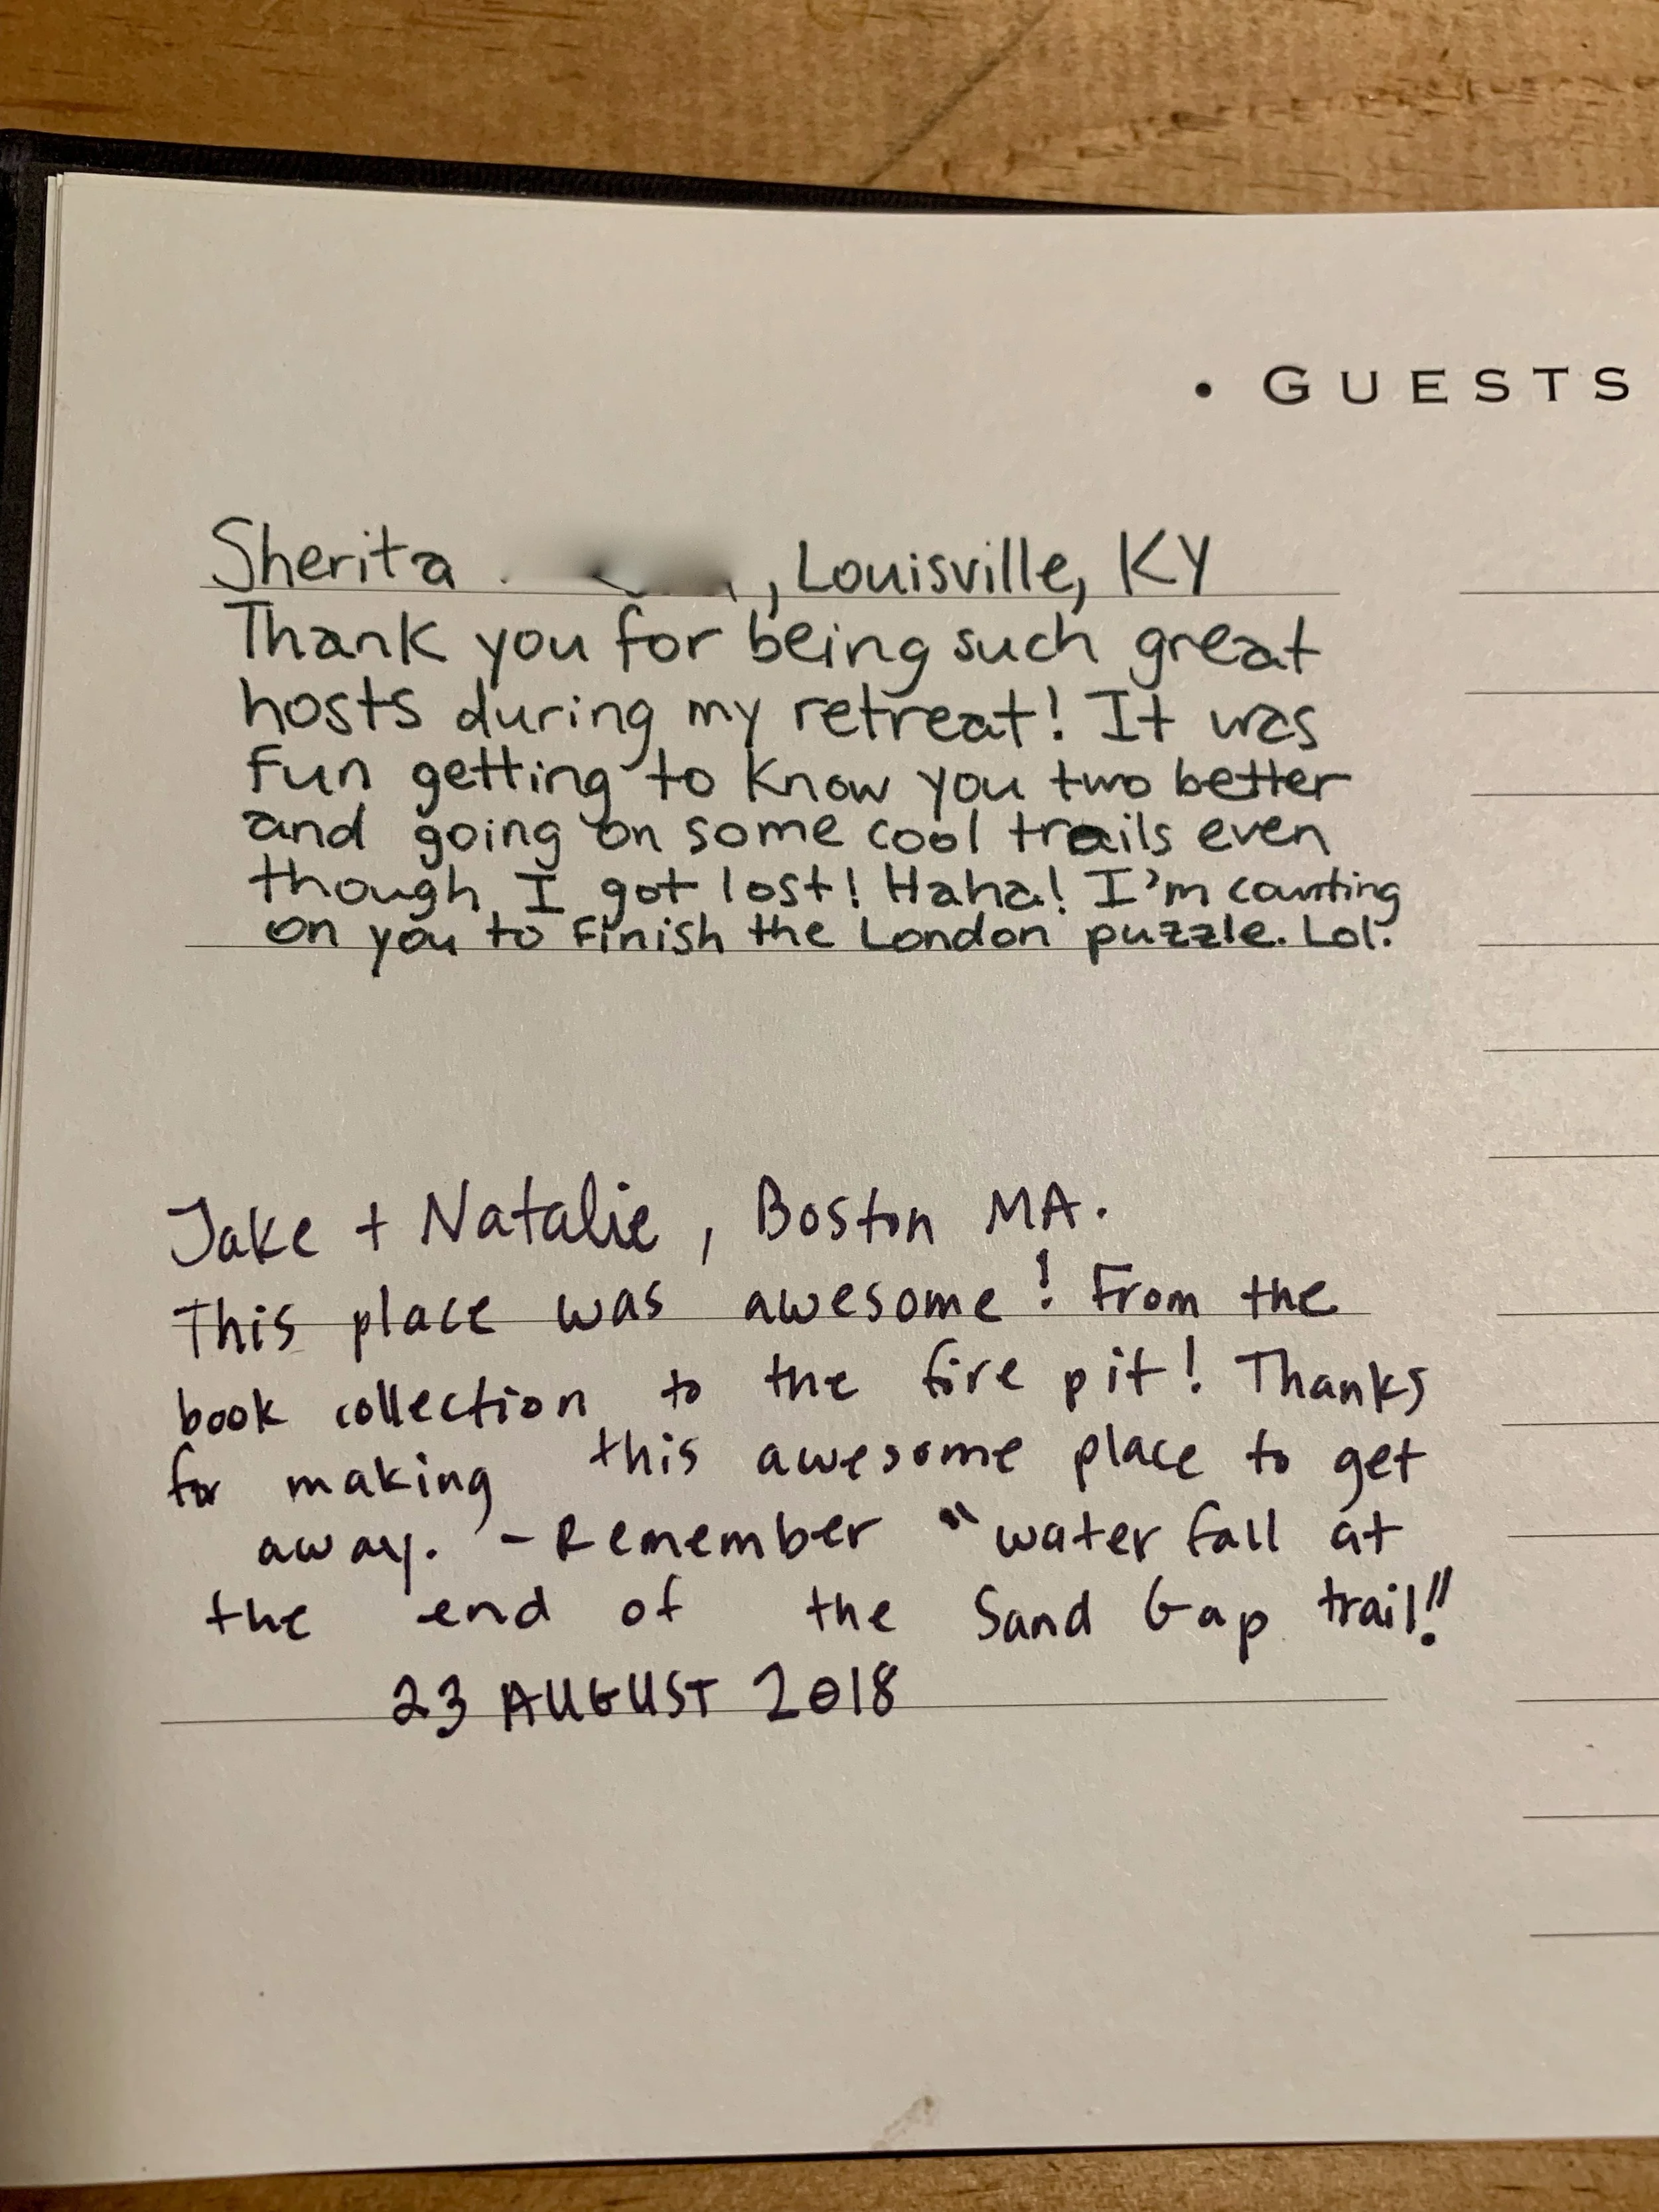 • GUESTS
Sherita , Louisville, KY
Thank you for being such great
hosts during my retreat! It was
fun getting to know you two better
and going on some cool trails even
though I got lost! Haha! I'm counting
on you to finish the London puzzle. Lol.
Jake + Natalie, Boston MA.
This place was awesome! From the
book collection to the fire pit! Thanks
for making this awesome place to get
away. - Remember "water fall at
the end of the Sand Gap trail!!
23 AUGUST 2018